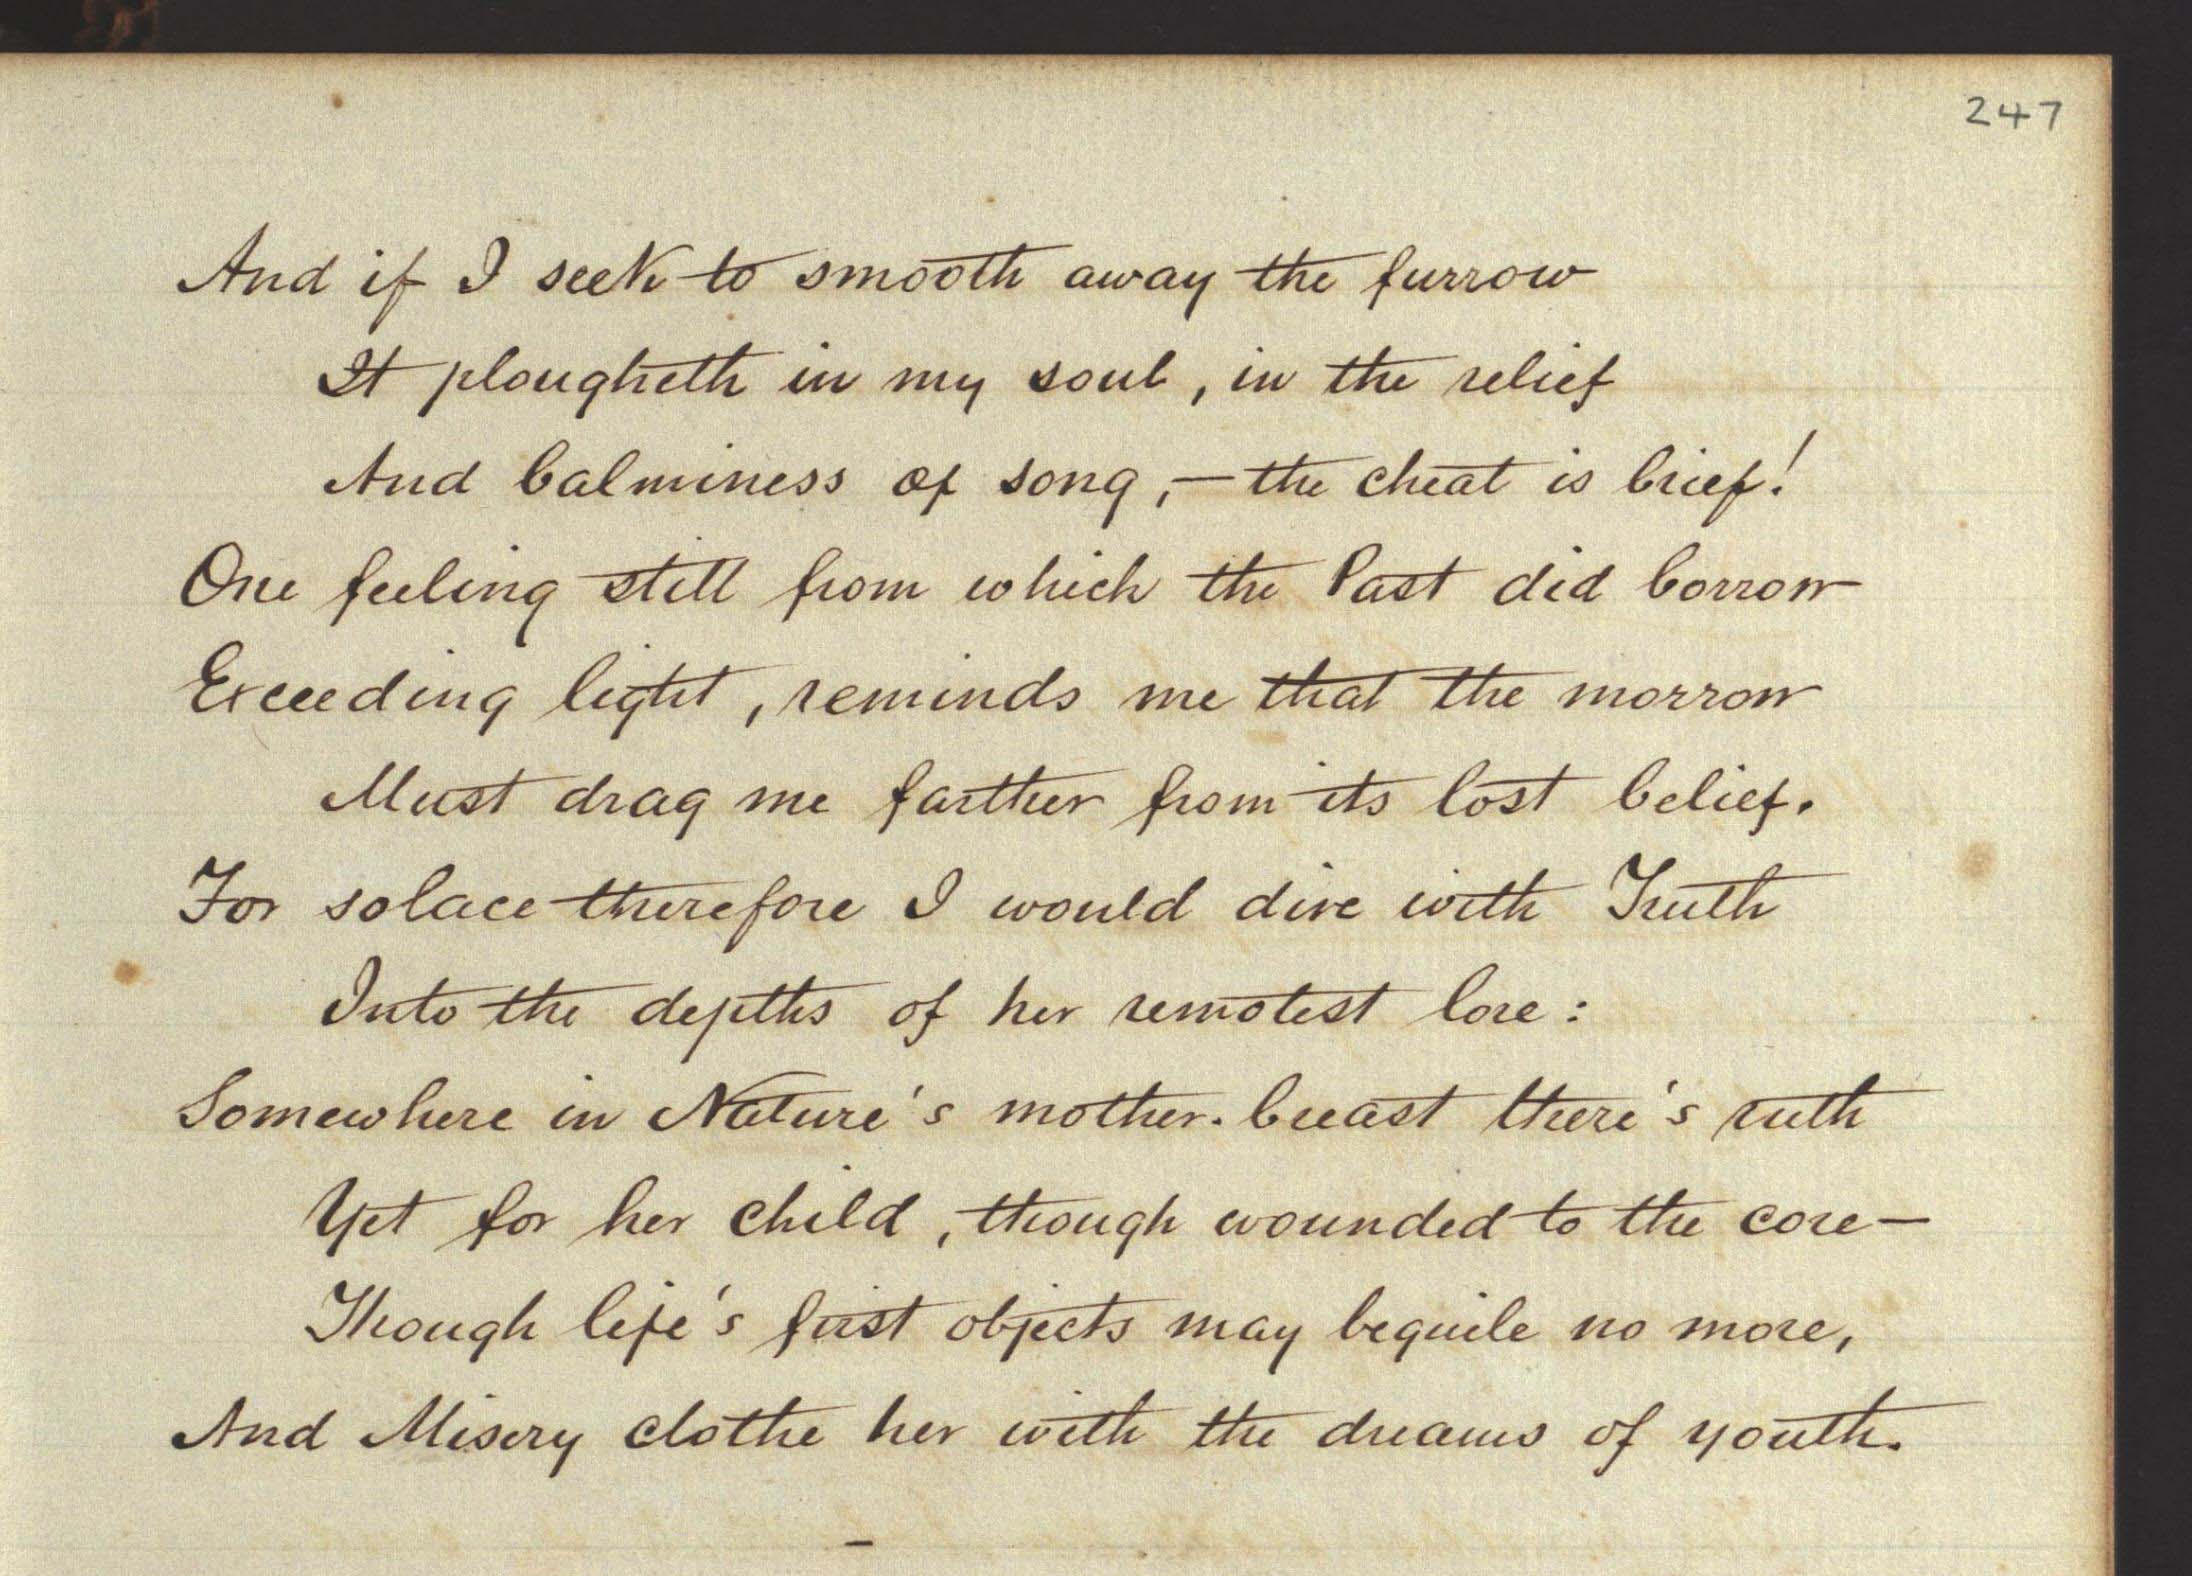 247
And if I seek to smooth away the furrow
It plougheth in my soul, in the relief
And balminess of song,—the cheat is brief!
One feeling still from which the Past did borrow
Exceeding light, reminds me that the morrow
Must drag me farther from its lost belief.
For solace therefore I would dive with Truth
Into the depths of her remotest lore:
Somewhere in Nature's mother-breast there's ruth
Yet for her child, though wounded to the core—
Though life's first objects may beguile no more,
And Misery clothe her with the dreams of youth.